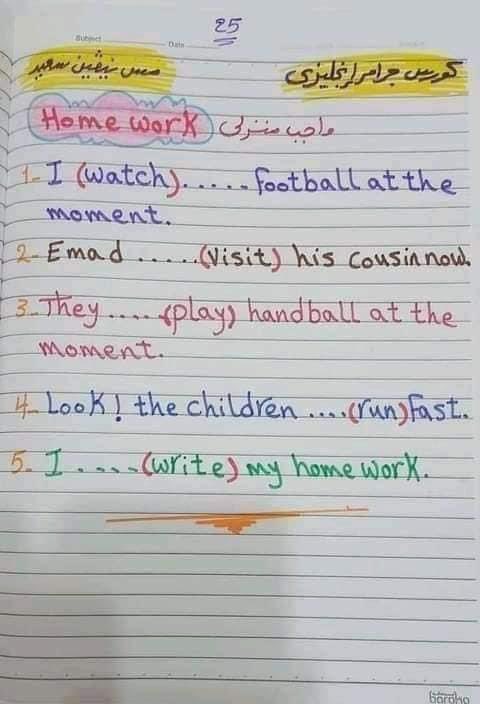 25
Subject
Date
كورس جرامر إنجليزى
مس نيڤين سعيد
Home work واجب منزلى
1- I (watch)...... football at the
moment.
2- Emad ......(visit) his cousin now.
3- They ....(play) handball at the
moment.
4- Look! the children ....(run) fast.
5- I ....(write) my home work.
baraka